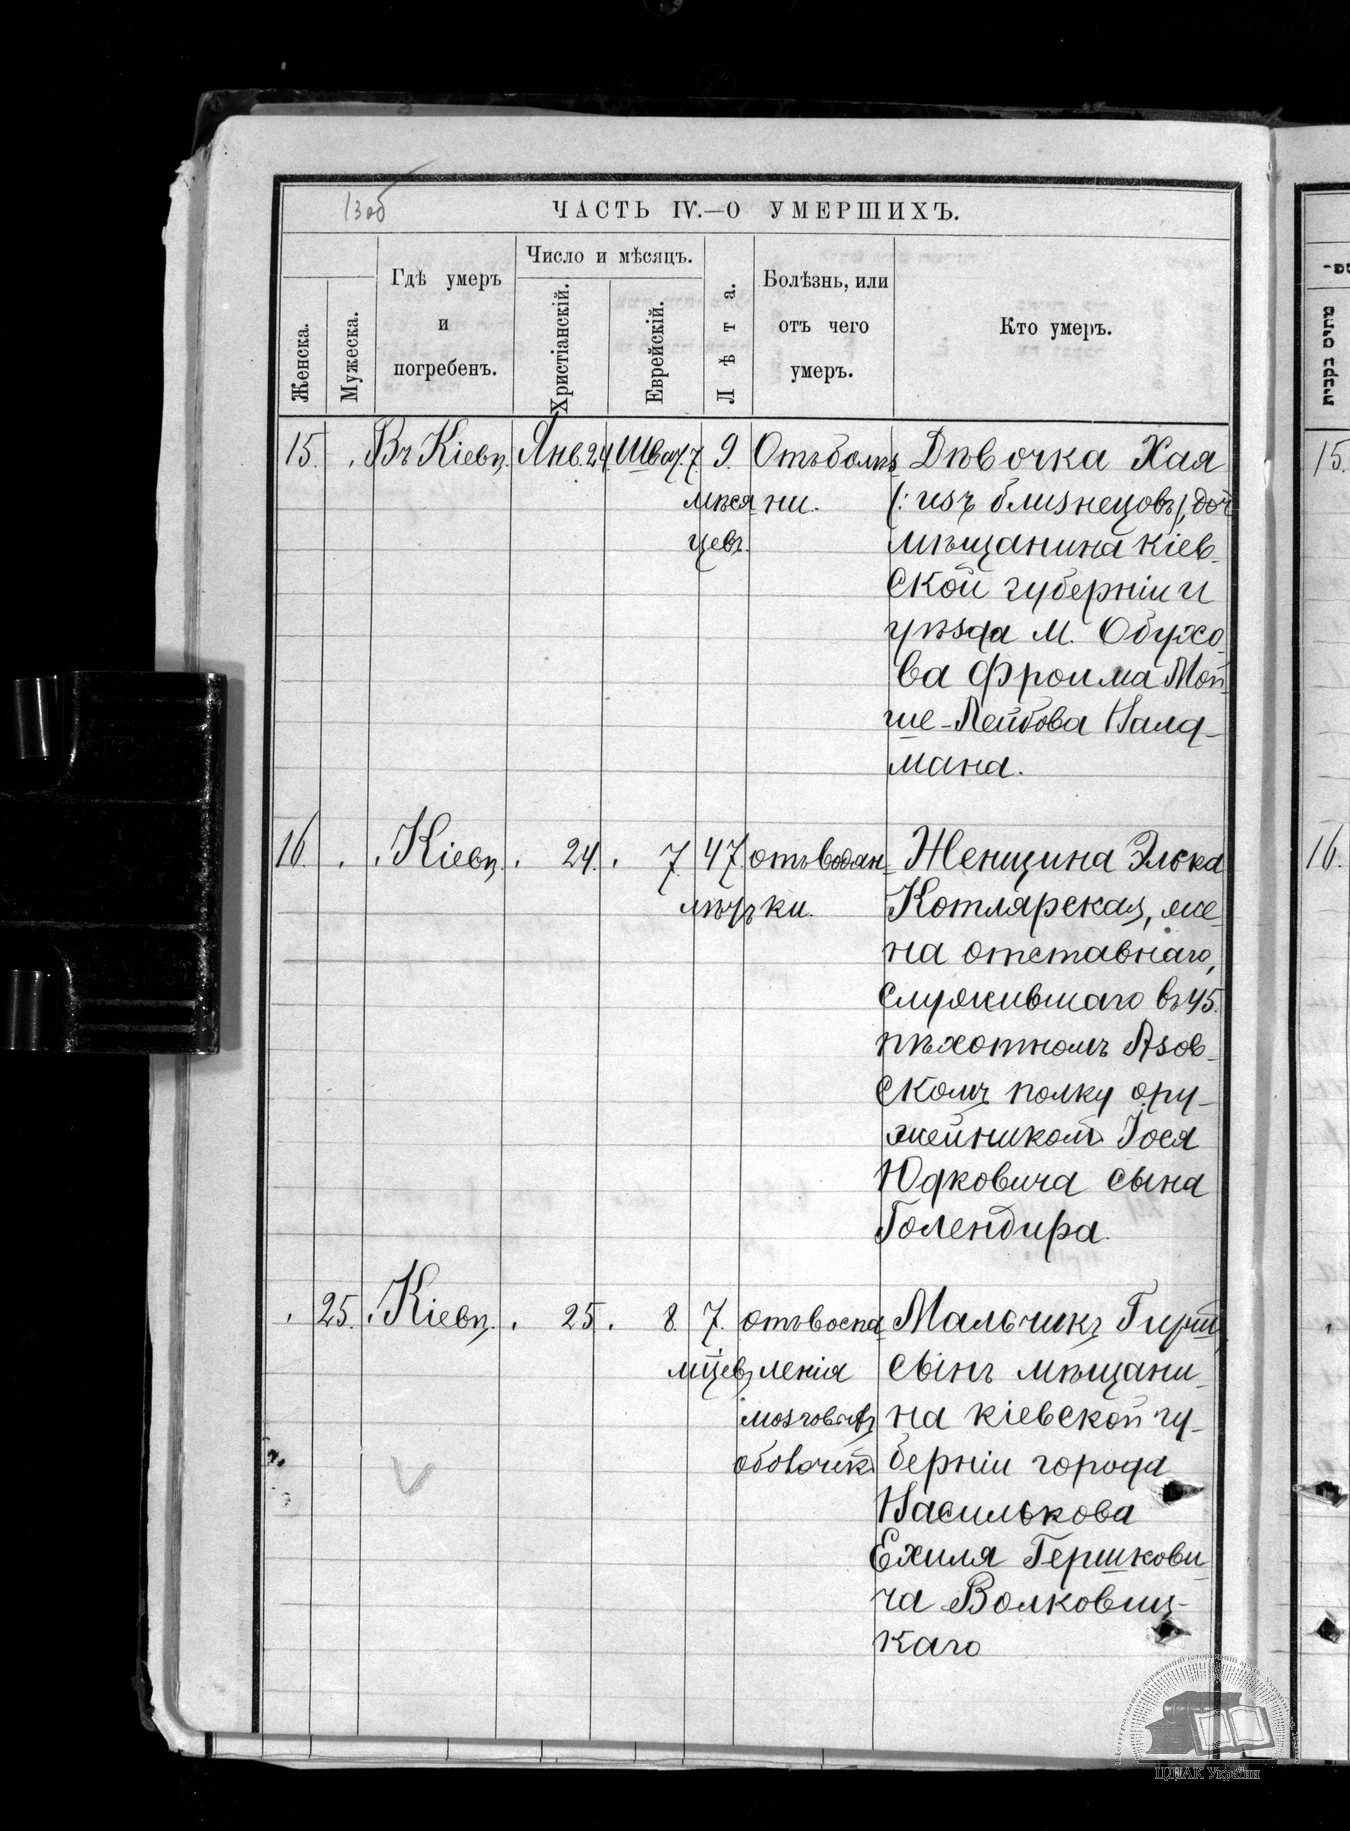 13 об
ЧАСТЬ IV.—О УМЕРШИХЪ.
Женска.
Мужеска.
Гдѣ умеръ
и
погребенъ.
Число и мѣсяцъ.
Христіанскій.
Еврейскій.
Лѣта.
Болѣзнь, или
отъ чего
умеръ.
Кто умеръ.
15. Въ Кіевѣ Янв. 24 7. 9. Отъ Дѣвочка Хая
мѣся ни. (: изъ близнецовъ), доч
цевъ. мѣщанина кіев-
ской губерніи и
уѣзда м. Обухо-
ва Фроима Мой
ше-Лейбова Налд-
мана.
16. Кіевѣ. 24. 7. 47 отъ водян- Женщина Элька
ки. Котлярская, же-
на отставнаго,
служившаго въ 45.
пѣхотномъ Азов-
скомъ полку ору-
жейникомъ Іося
Юдковича сына
Голендира.
25. Кіевѣ. 25. 8. 7. отъ воспа Мальчикъ Гирш,
мцевъ ленія сынъ мѣщани-
мозговыхъ на кіевской гу-
оболочекъ берніи города
Василькова
Ехиля Гершкови-
ча Волковиц-
каго
15.
16.
ЦДІАК України